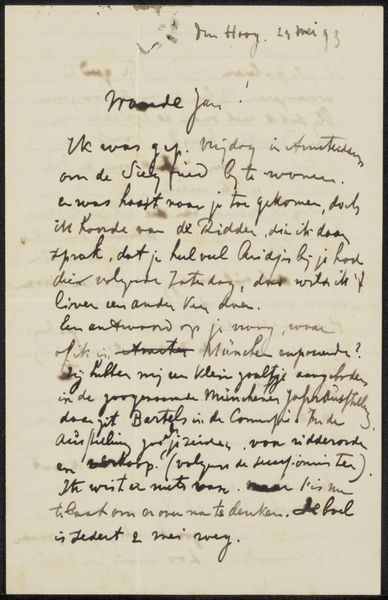 den Haag. 29 mei 93
Waarde Jan!
Ik was gep. vrijdag in Amsterdam
om de Siegfried bij te wonen.
en was haast naar je toe gekomen, doch
ik hoorde van de Ridder, die ik daar
sprak, dat je heel veel bij je had
dien volgende Zaterdag, dus wilde ik 't
liever een ander keer doen.
Een antwoord op je vraag, waar
of ik in München exposeerde?
Zij hebben mij een klein zaaltje aangeboden
in de zoogenaamde Münchener Jahresausstellung
daar zit Bartels in de Commissie. In de
voor ridderorde
en verkoop. (volgens de secessionisten).
Ik wist er niets van. is nu
te laat om er over na te denken. De boel
is sedert 2 mei weg.